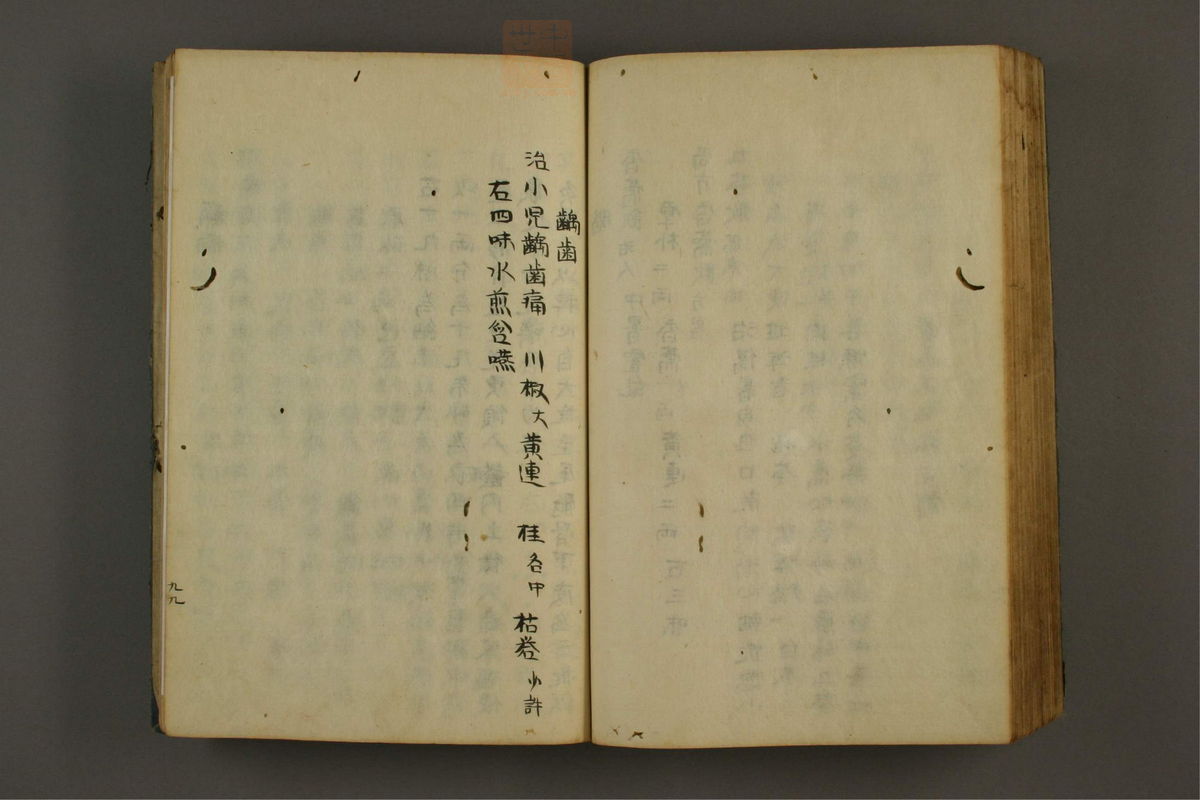 齲歯
治小児齲歯痛 川椒大 黄連 桂各中 枯礬少許
右四味水煎含嚥
九九